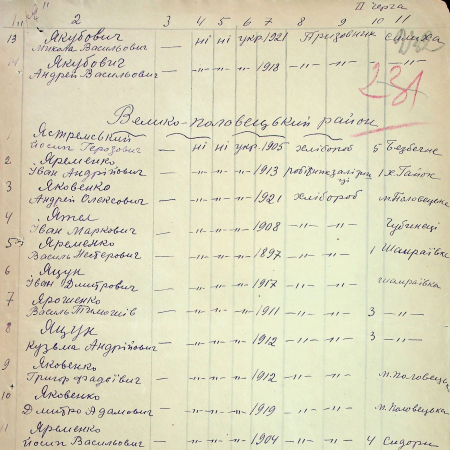 II черга
1 2 3 4 5 6 7 8 9 10 11
13 Якубович
Микола Васильович — ні ні укр. 1921 Призовник
14 Якубович
Андрей Васильович — -"- -"- -"- 1918 -"- -"-
231
Велико-Половецький район
1 Ястремський
Йосип — ні ні укр. 1905 хлібороб 5 Безпечне
2 Яременко
Іван Андрійович — -"- -"- -"- 1913 1 х. Гайок
3 Яковенко
Андрей Олексович — -"- -"- -"- 1921 хлібороб м. Половецьке
4 Ятел
Іван Маркович — -"- -"- -"- 1908 -"- -"- Чубинеці
5 Яременко
Василь Нестерович — -"- -"- -"- 1897 -"- -"- 1 Шамраївка
6 Яцун
Іван Дмитрович — -"- -"- -"- 1917 -"- -"- Шамраївка
7 Ярошенко
Василь Тимошів — -"- -"- -"- 1911 -"- -"- 3 -"-
8 Яцун
Кузьма Андрійович — -"- -"- -"- 1912 -"- -"- 3 -"-
9 Яковенко
Григор Фадеївич — -"- -"- -"- 1912 -"- -"- м. Половецьк
10 Яковенко
Дмитро Адамович — -"- -"- -"- 1919 -"- -"- м. Половецька
11 Яременко
Йосип Васильович — -"- -"- -"- 1904 -"- -"- 4 Сидори